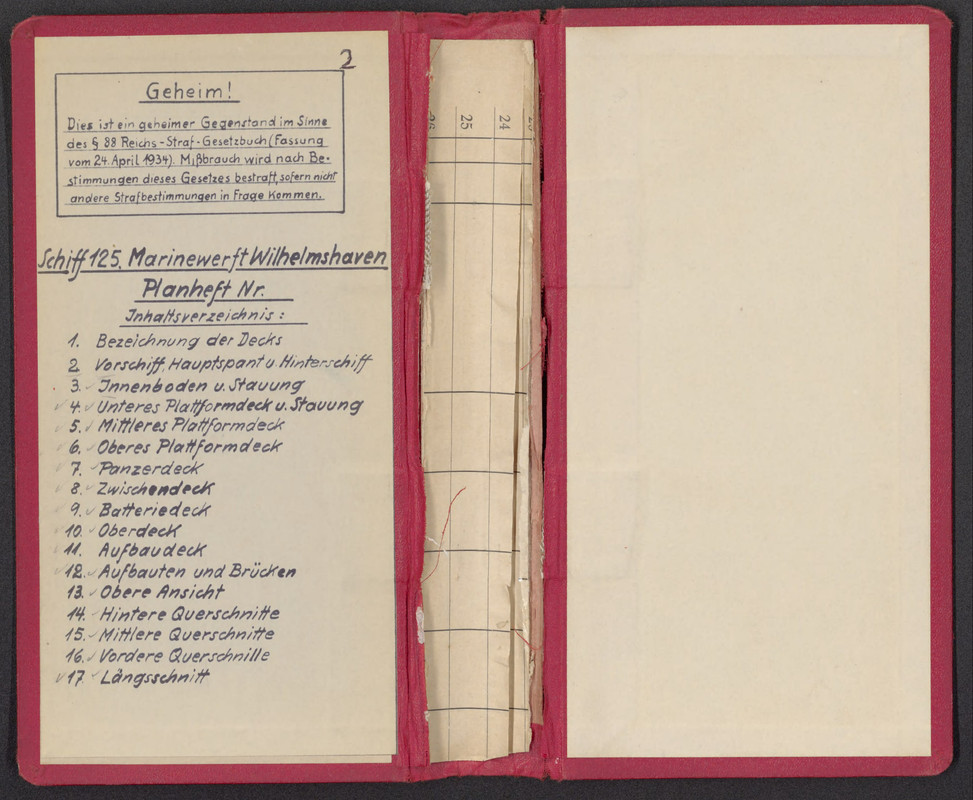 2
Geheim!
Dies ist ein geheimer Gegenstand im Sinne
des § 88 Reichs-Straf-Gesetzbuch (Fassung
vom 24. April 1934). Mißbrauch wird nach Be-
stimmungen dieses Gesetzes bestraft, sofern nicht
andere Strafbestimmungen in Frage kommen.
Schiff 125. Marinewerft Wilhelmshaven
Planheft Nr.
Inhaltsverzeichnis:
1. Bezeichnung der Decks
2 Vorschiff, Hauptspant u. Hinterschiff
3. Innenboden u. Stauung
4. Unteres Plattformdeck u. Stauung
5. Mittleres Plattformdeck
6. Oberes Plattformdeck
7. Panzerdeck
8. Zwischendeck
9. Batteriedeck
10. Oberdeck
11. Aufbaudeck
12. Aufbauten und Brücken
13. Obere Ansicht
14. Hintere Querschnitte
15. Mittlere Querschnitte
16. Vordere Querschnitte
17 Längsschnitt
25
24